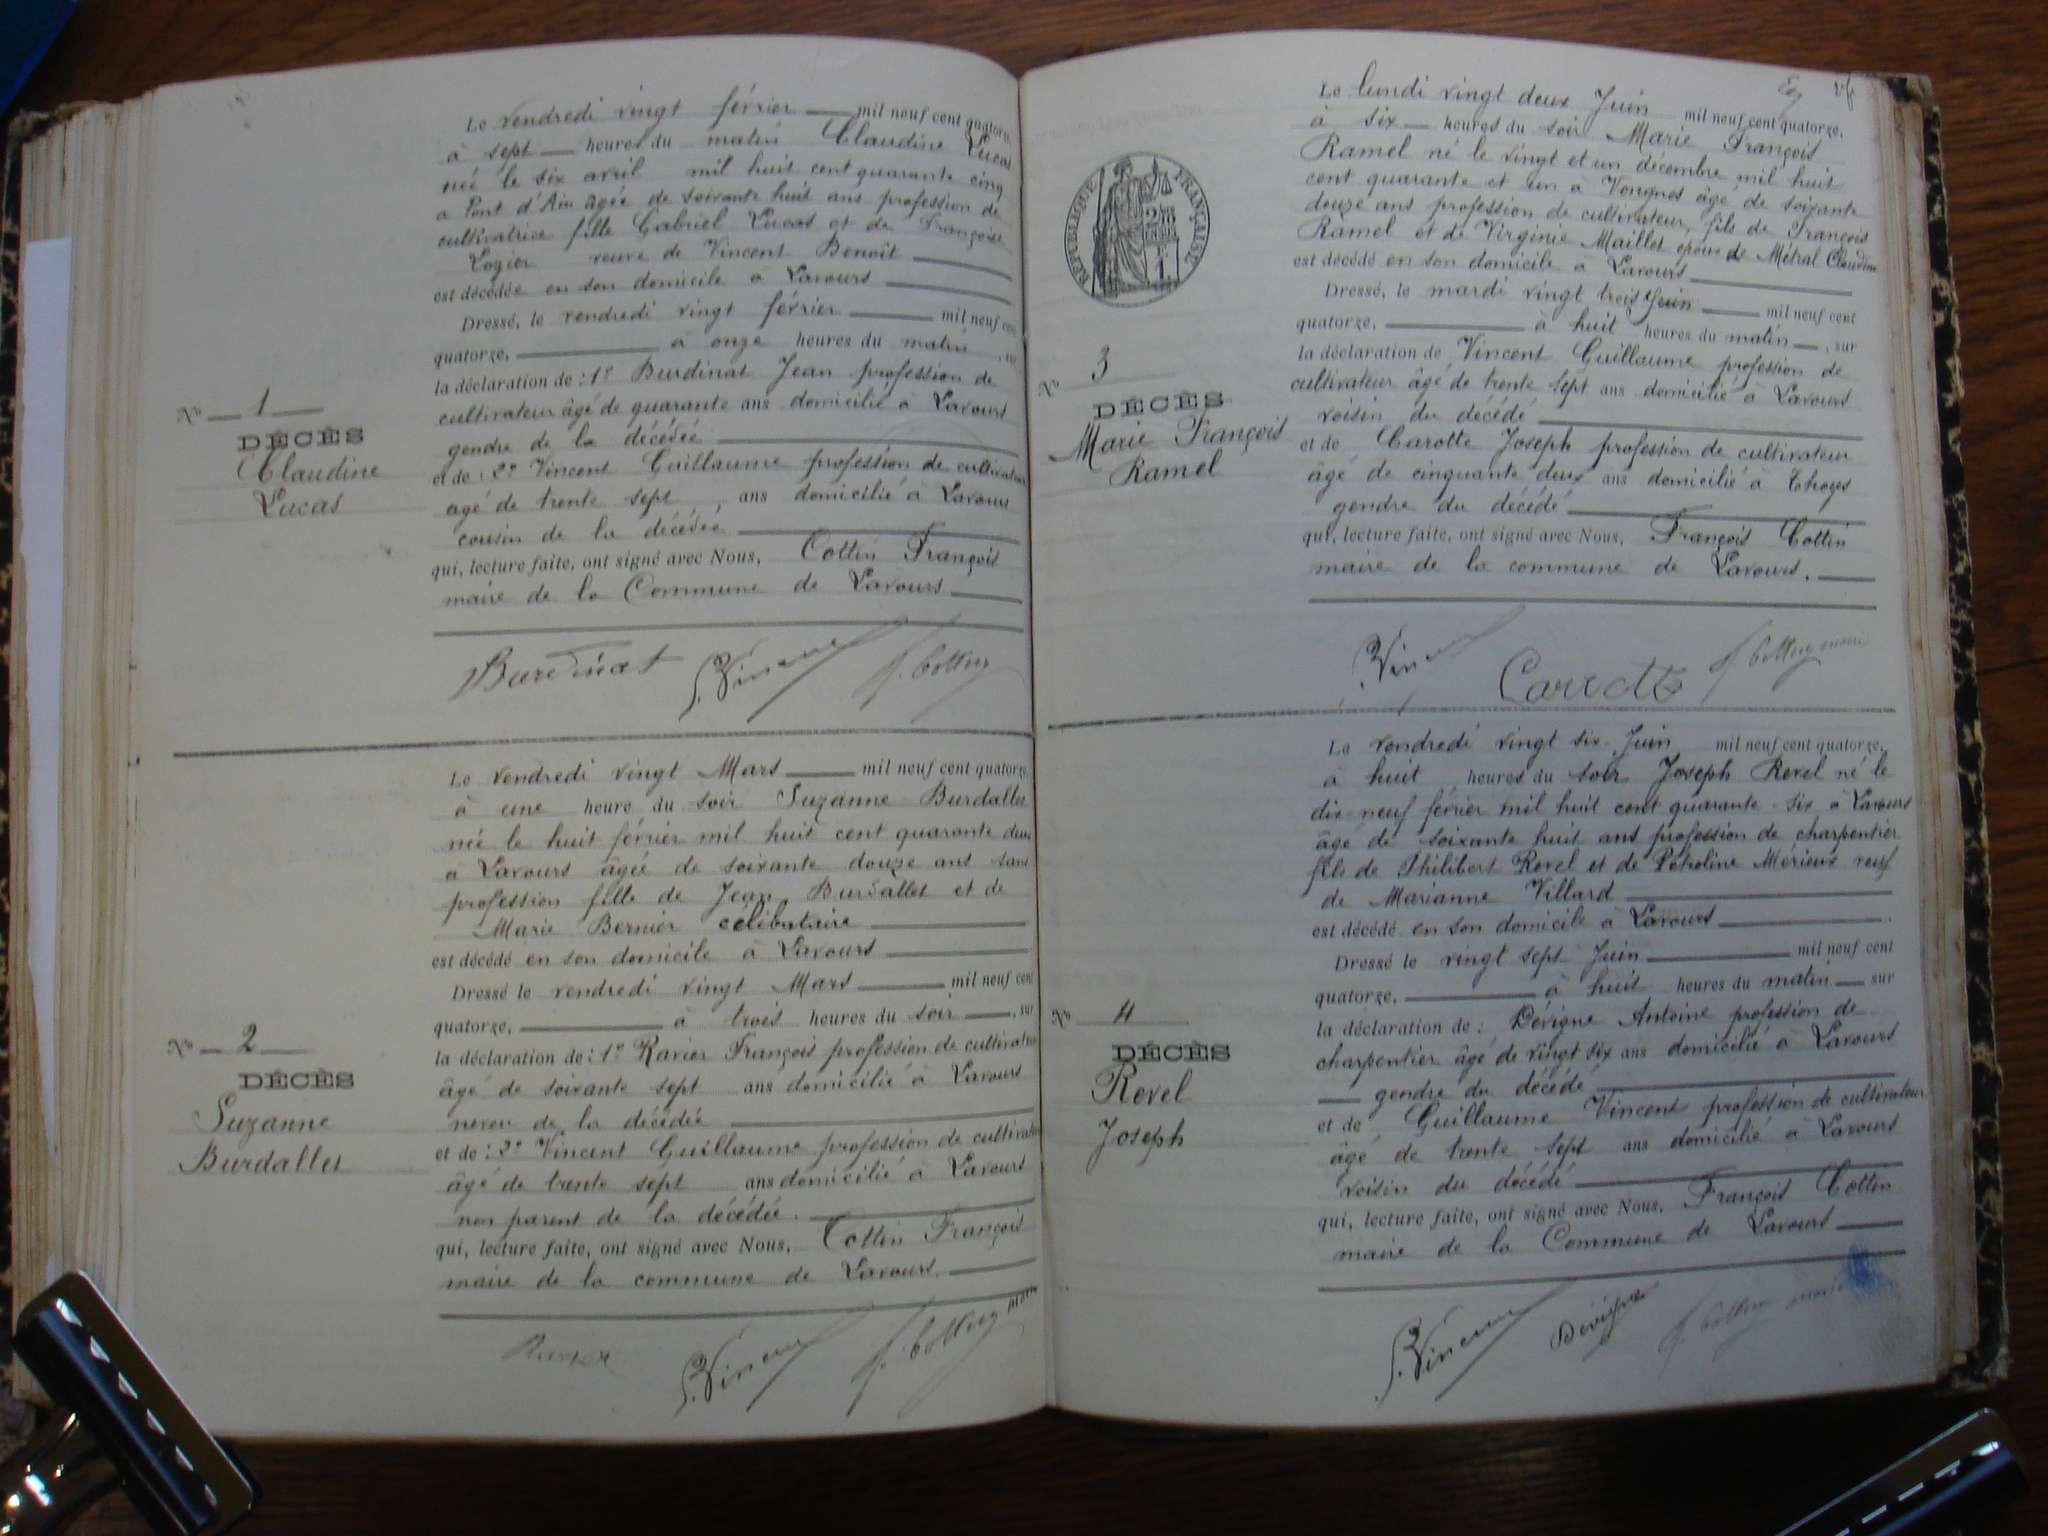 Le vendredi vingt février mil neuf cent quatorze,
à sept heures du matin Claudine Lucas
née le six avril mil huit cent quarante cinq
a Pont d'Ain âgée de soixante huit ans profession de
cultivatrice fille Gabriel Lucas et de Françoise
Lozier veuve de Vincent Benoît
est décédée en son domicile à Lavours
Dressé, le vendredi vingt février mil neuf cent
quatorze, à onze heures du matin, sur
la déclaration de : 1º Burdinat Jean profession de
cultivateur âgé de quarante ans domicilié à Lavours
gendre de la décédée
et de : 2º Vincent Guillaume profession de cultivateur
agé de trente sept ans domicilié à Lavours
cousin de la décédée
qui, lecture faite, ont signé avec Nous, Cottin François
maire de la Commune de Lavours
No 1
DÉCÈS
Claudine
Lucas
Burdinat G. Vincent F. Cottin
Le vendredi vingt Mars mil neuf cent quatorze,
à une heure du soir Suzanne Burdallet
née le huit février mil huit cent quarante deux
à Lavours âgée de soixante douze ans sans
profession fille de Jean Burdallet et de
Marie Bernier célibataire
est décédé en son domicile à Lavours
Dressé le vendredi vingt Mars mil neuf cent
quatorze, à trois heures du soir, sur
la déclaration de : 1º Ravier François profession de cultivateur
âgé de soixante sept ans domicilié à Lavours
neveu de la décédée
et de : 2º Vincent Guillaume profession de cultivateur
âgé de trente sept ans domicilié à Lavours
non parent de la décédée.
qui, lecture faite, ont signé avec Nous, Cottin François
maire de la commune de Lavours.
No 2
DÉCÈS
Suzanne
Burdallet
Ravier G. Vincent F. Cottin maire
Le lundi vingt deux Juin mil neuf cent quatorze,
à six heures du soir Marie François
Ramel né le vingt et un décembre mil huit
cent quarante et un a Vongnes âgé de soixante
douze ans profession de cultivateur, fils de François
Ramel et de Virginie Maillet époux de Métral Claudine
est décédé en son domicile à Lavours
Dressé, le mardi vingt trois Juin mil neuf cent
quatorze, à huit heures du matin, sur
la déclaration de Vincent Guillaume profession de
cultivateur âgé de trente sept ans domicilié à Lavours
voisin du décédé
et de Carotte Joseph profession de cultivateur
âgé de cinquante deux ans domicilié à
gendre du décédé
qui, lecture faite, ont signé avec Nous, François Cottin
maire de la commune de Lavours.
RÉPUBLIQUE FRANÇAISE
No 3
DÉCÈS
Marie François
Ramel
G. Vincent Carrotte F. Cottin maire
Le vendredi vingt six Juin mil neuf cent quatorze,
à huit heures du soir Joseph Revel né le
dix neuf février mil huit cent quarante-six à Lavours
âgé de soixante huit ans profession de charpentier
fils de Philibert Revel et de Pétroline Mérieux veuf
de Marianne Villard
est décédé en son domicile à Lavours
Dressé le vingt sept Juin mil neuf cent
quatorze, à huit heures du matin sur
la déclaration de : Dévigne Antoine profession de
charpentier âgé de vingt six ans domicilié à Lavours
gendre du décédé
et de Guillaume Vincent profession de cultivateur
âgé de trente sept ans domicilié à Lavours
voisin du décédé
qui, lecture faite, ont signé avec Nous, François Cottin
maire de la Commune de Lavours
No 4
DÉCÈS
Revel
Joseph
G. Vincent Dévigne F. Cottin maire